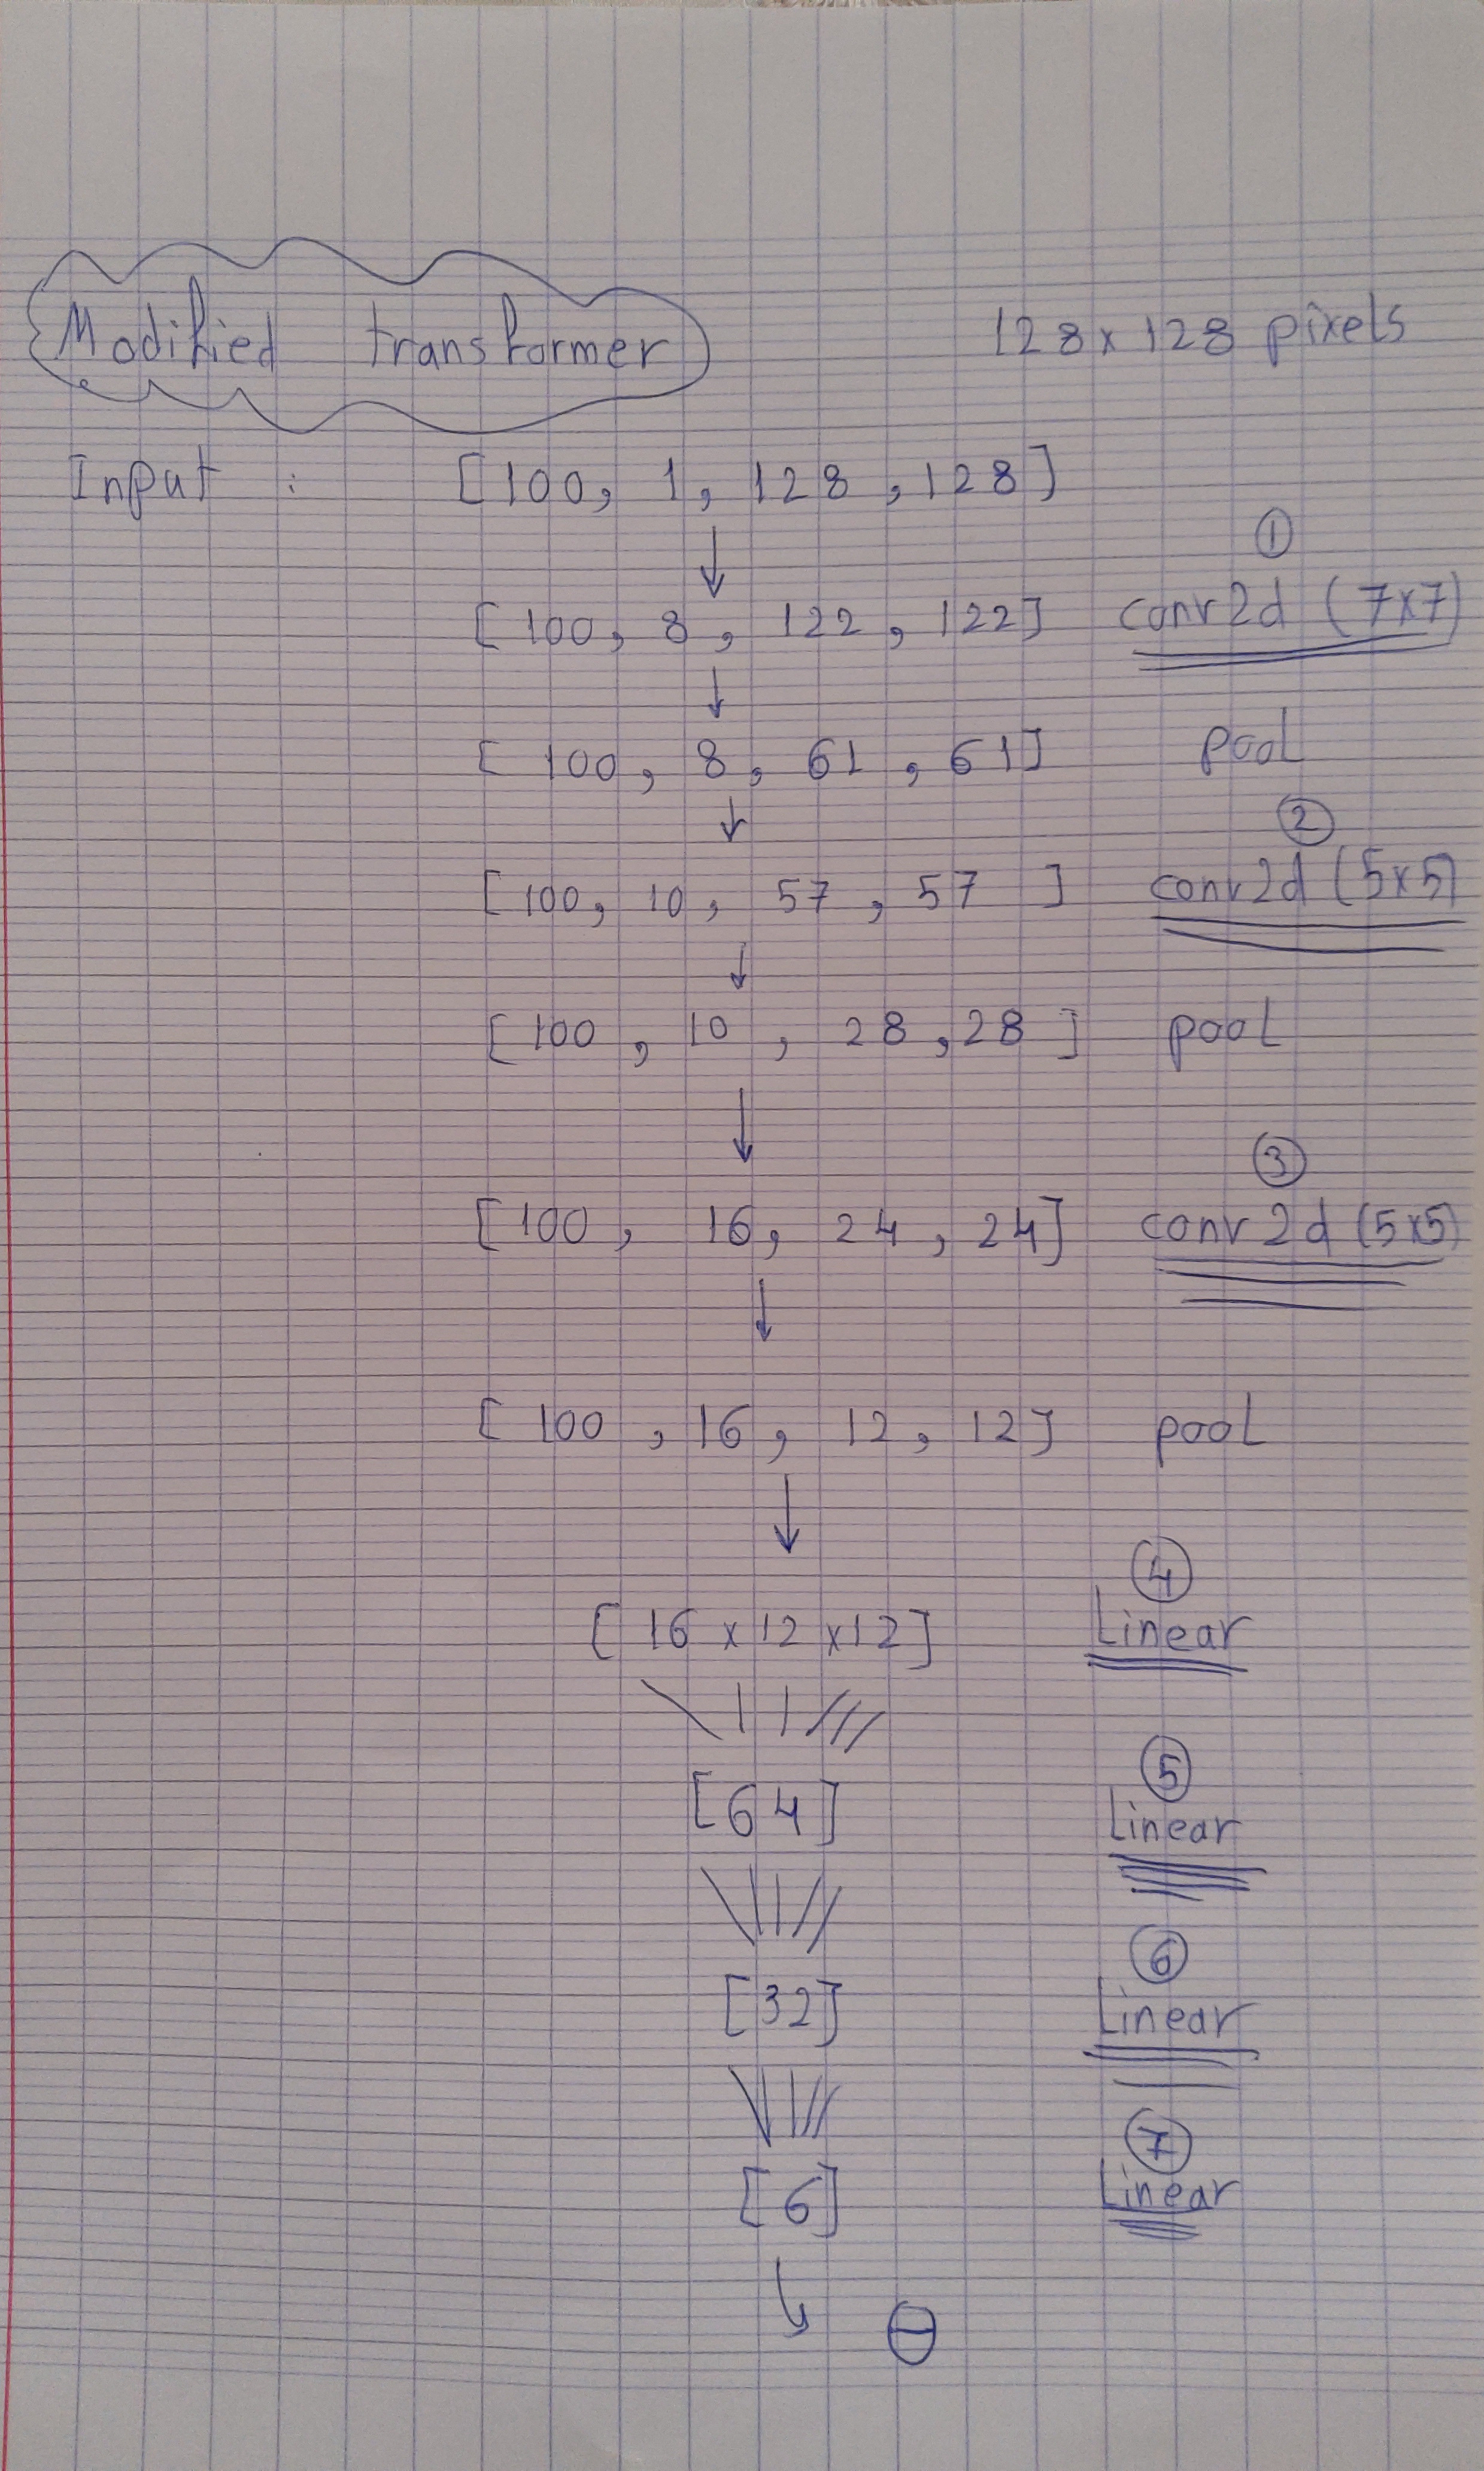 Modified transformer 128 x 128 pixels
Input : [100, 1, 128, 128]
↓ ①
[100, 8, 122, 122] conv2d (7x7)
↓
[100, 8, 61, 61] pool
↓ ②
[100, 10, 57, 57] conv2d (5x5)
↓
[100, 10, 28, 28] pool
↓ ③
[100, 16, 24, 24] conv2d (5x5)
↓
[100, 16, 12, 12] pool
↓ ④
[16 x 12 x 12] Linear
⑤
[64] Linear
⑥
[32] Linear
⑦
[6] Linear
↓ θ